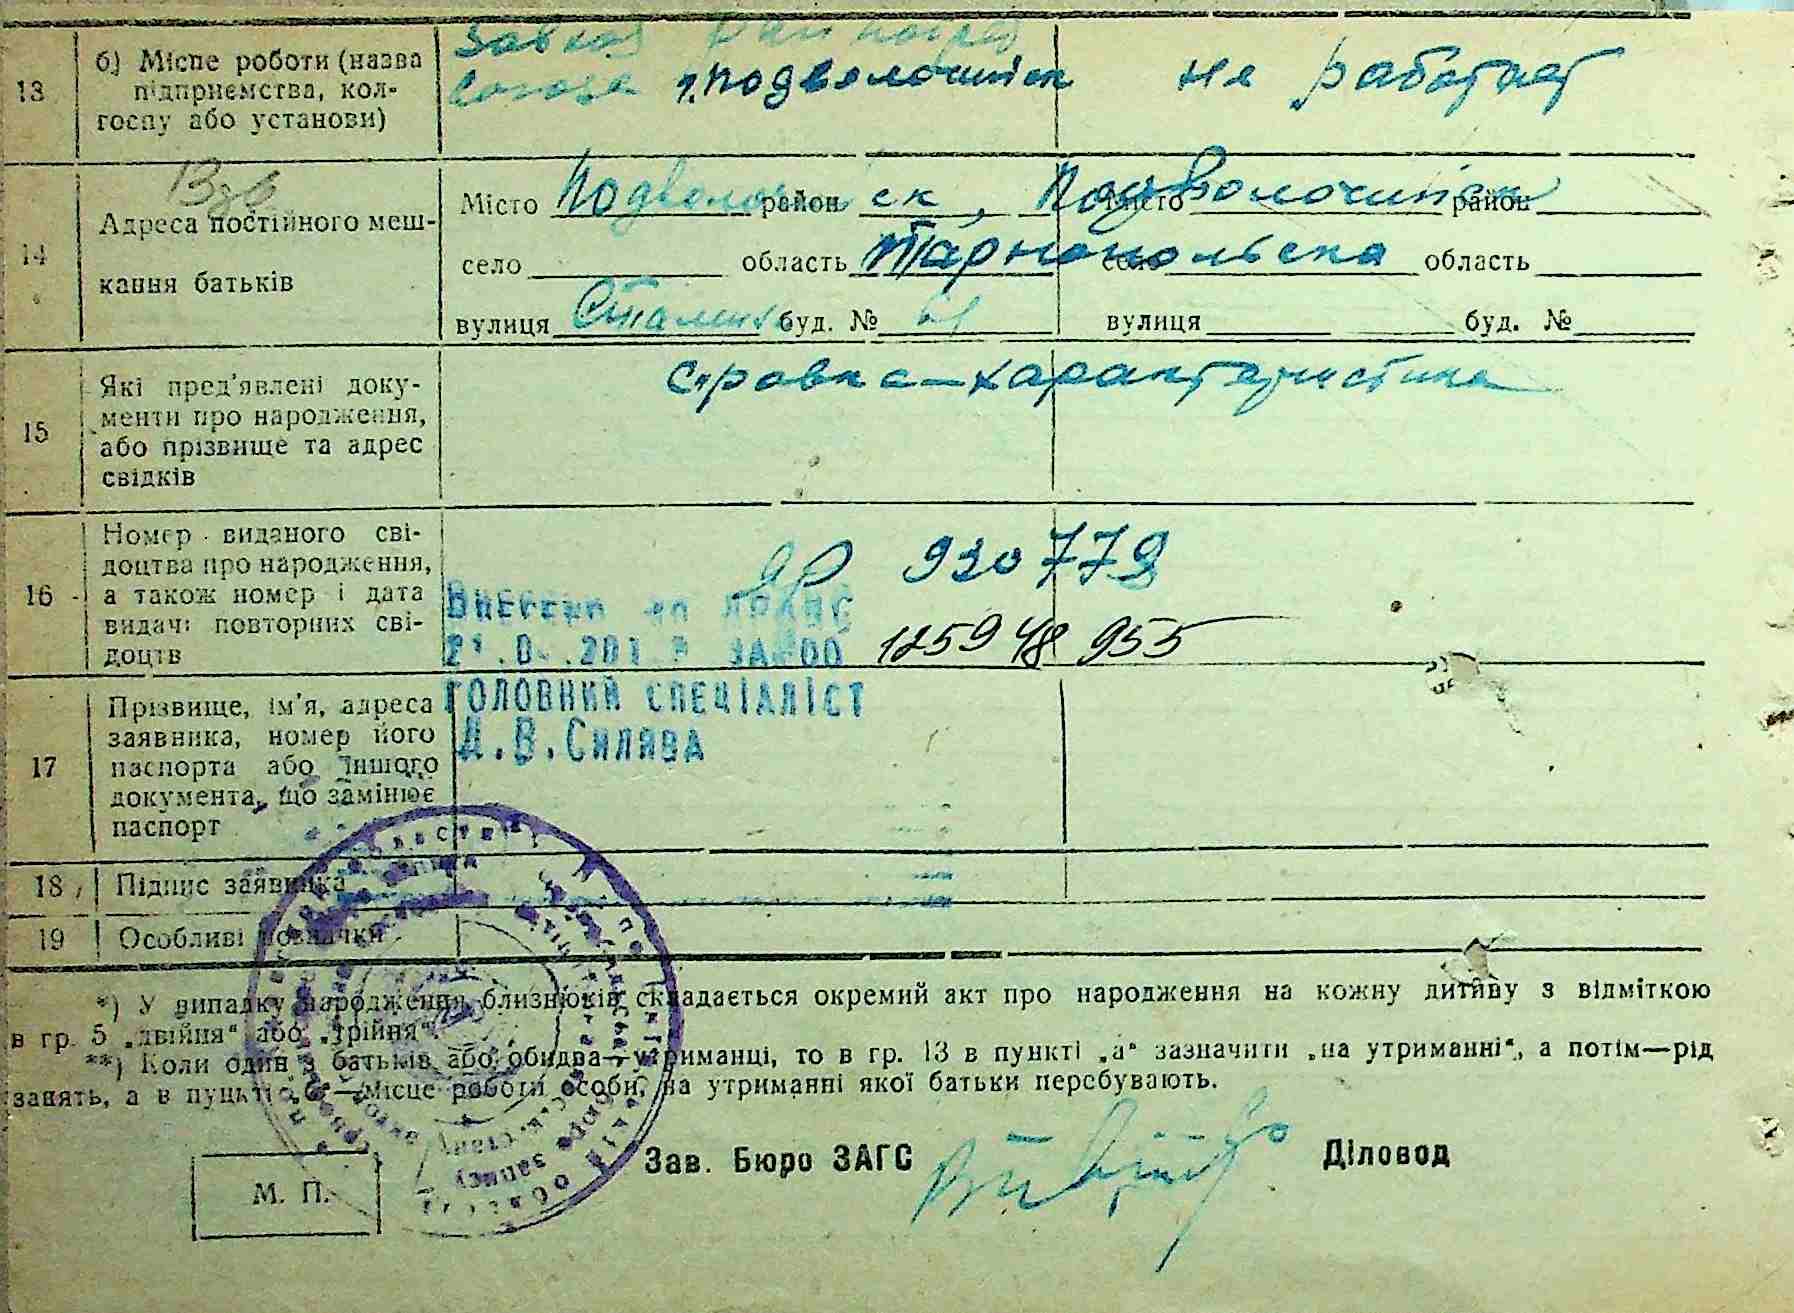 13
б) Місце роботи (назва
підприємства, кол-
госпу або установи)
Завход Райпотреб
союза г. Подволочиск
не работает
14
Адреса постійного меш-
кання батьків
Місто Подволочиск район, Подволочиск
місто район
село область Тарнопольска село область
вулиця Сталина буд. № вулиця буд. №
15
Які пред'явлені доку-
менти про народження,
або прізвище та адрес
свідків
справка-характеристика
16
Номер виданого сві-
доцтва про народження,
а також номер і дата
видачі повторних сві-
доцтв
930779
Внесено до ДРАЦС
ЗА №00 125948955
17
Прізвище, ім'я, адреса
заявника, номер його
паспорта або іншого
документа, що замінює
паспорт
ГОЛОВНИЙ СПЕЦІАЛІСТ
Д.В.Силява
18 Підпис заявника
19 Особливі позначки
*) У випадку народження близнюків складається окремий акт про народження на кожну дитину з відміткою
в гр. 5 „двійня“ або „трійня“.
**) Коли один з батьків або обидва—утриманці, то в гр. 13 в пункті „а“ зазначити „на утриманні“, а потім—рід
занять, а в пункті „б“—місце роботи особи, на утриманні якої батьки перебувають.
Зав. Бюро ЗАГС
Діловод
М. П.